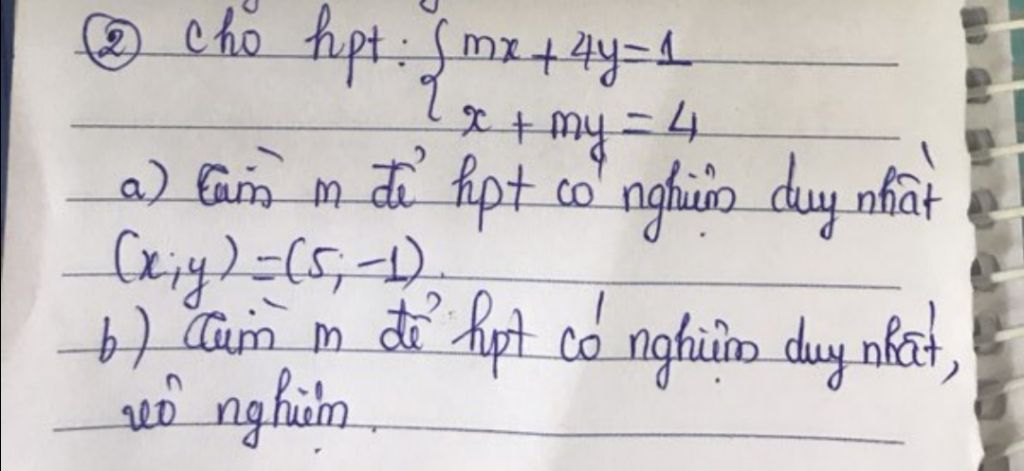 ② Cho hpt: { mx + 4y = 1
x + my = 4
a) Tìm m để hpt có nghiệm duy nhất
(x;y) = (5; -1).
b) Tìm m để hpt có nghiệm duy nhất,
vô nghiệm.